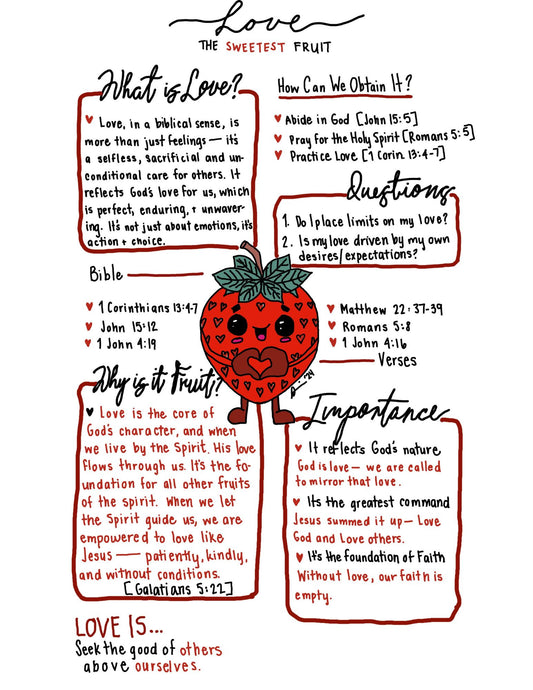 Love
THE SWEETEST FRUIT
What is Love?
Love, in a biblical sense, is
more than just feelings — it's
a selfless, sacrificial and un-
conditional care for others. It
reflects God's love for us, which
is perfect, enduring, + unwaver-
ing. It's not just about emotions, it's
action + choice.
How Can We Obtain It?
Abide in God [John 15:5]
Pray for the Holy Spirit [Romans 5:5]
Practice Love [1 Corin. 13:4-7]
Questions
1. Do I place limits on my love?
2. Is my love driven by my own
desires/expectations?
Bible
1 Corinthians 13:4-7
John 15:12
1 John 4:19
Matthew 22:37-39
Romans 5:8
1 John 4:16
Verses
Why is it Fruit?
Love is the core of
God's character, and when
we live by the Spirit, His love
flows through us. It's the fo-
undation for all other fruits
of the spirit. When we let
the Spirit guide us, we are
empowered to love like
Jesus — patiently, kindly,
and without conditions.
[Galatians 5:22]
Importance
It reflects God's nature
God is love — we are called
to mirror that love.
It's the greatest command
Jesus summed it up — Love
God and Love others.
It's the foundation of Faith
Without love, our faith is
empty.
LOVE IS...
Seek the good of others
above ourselves.